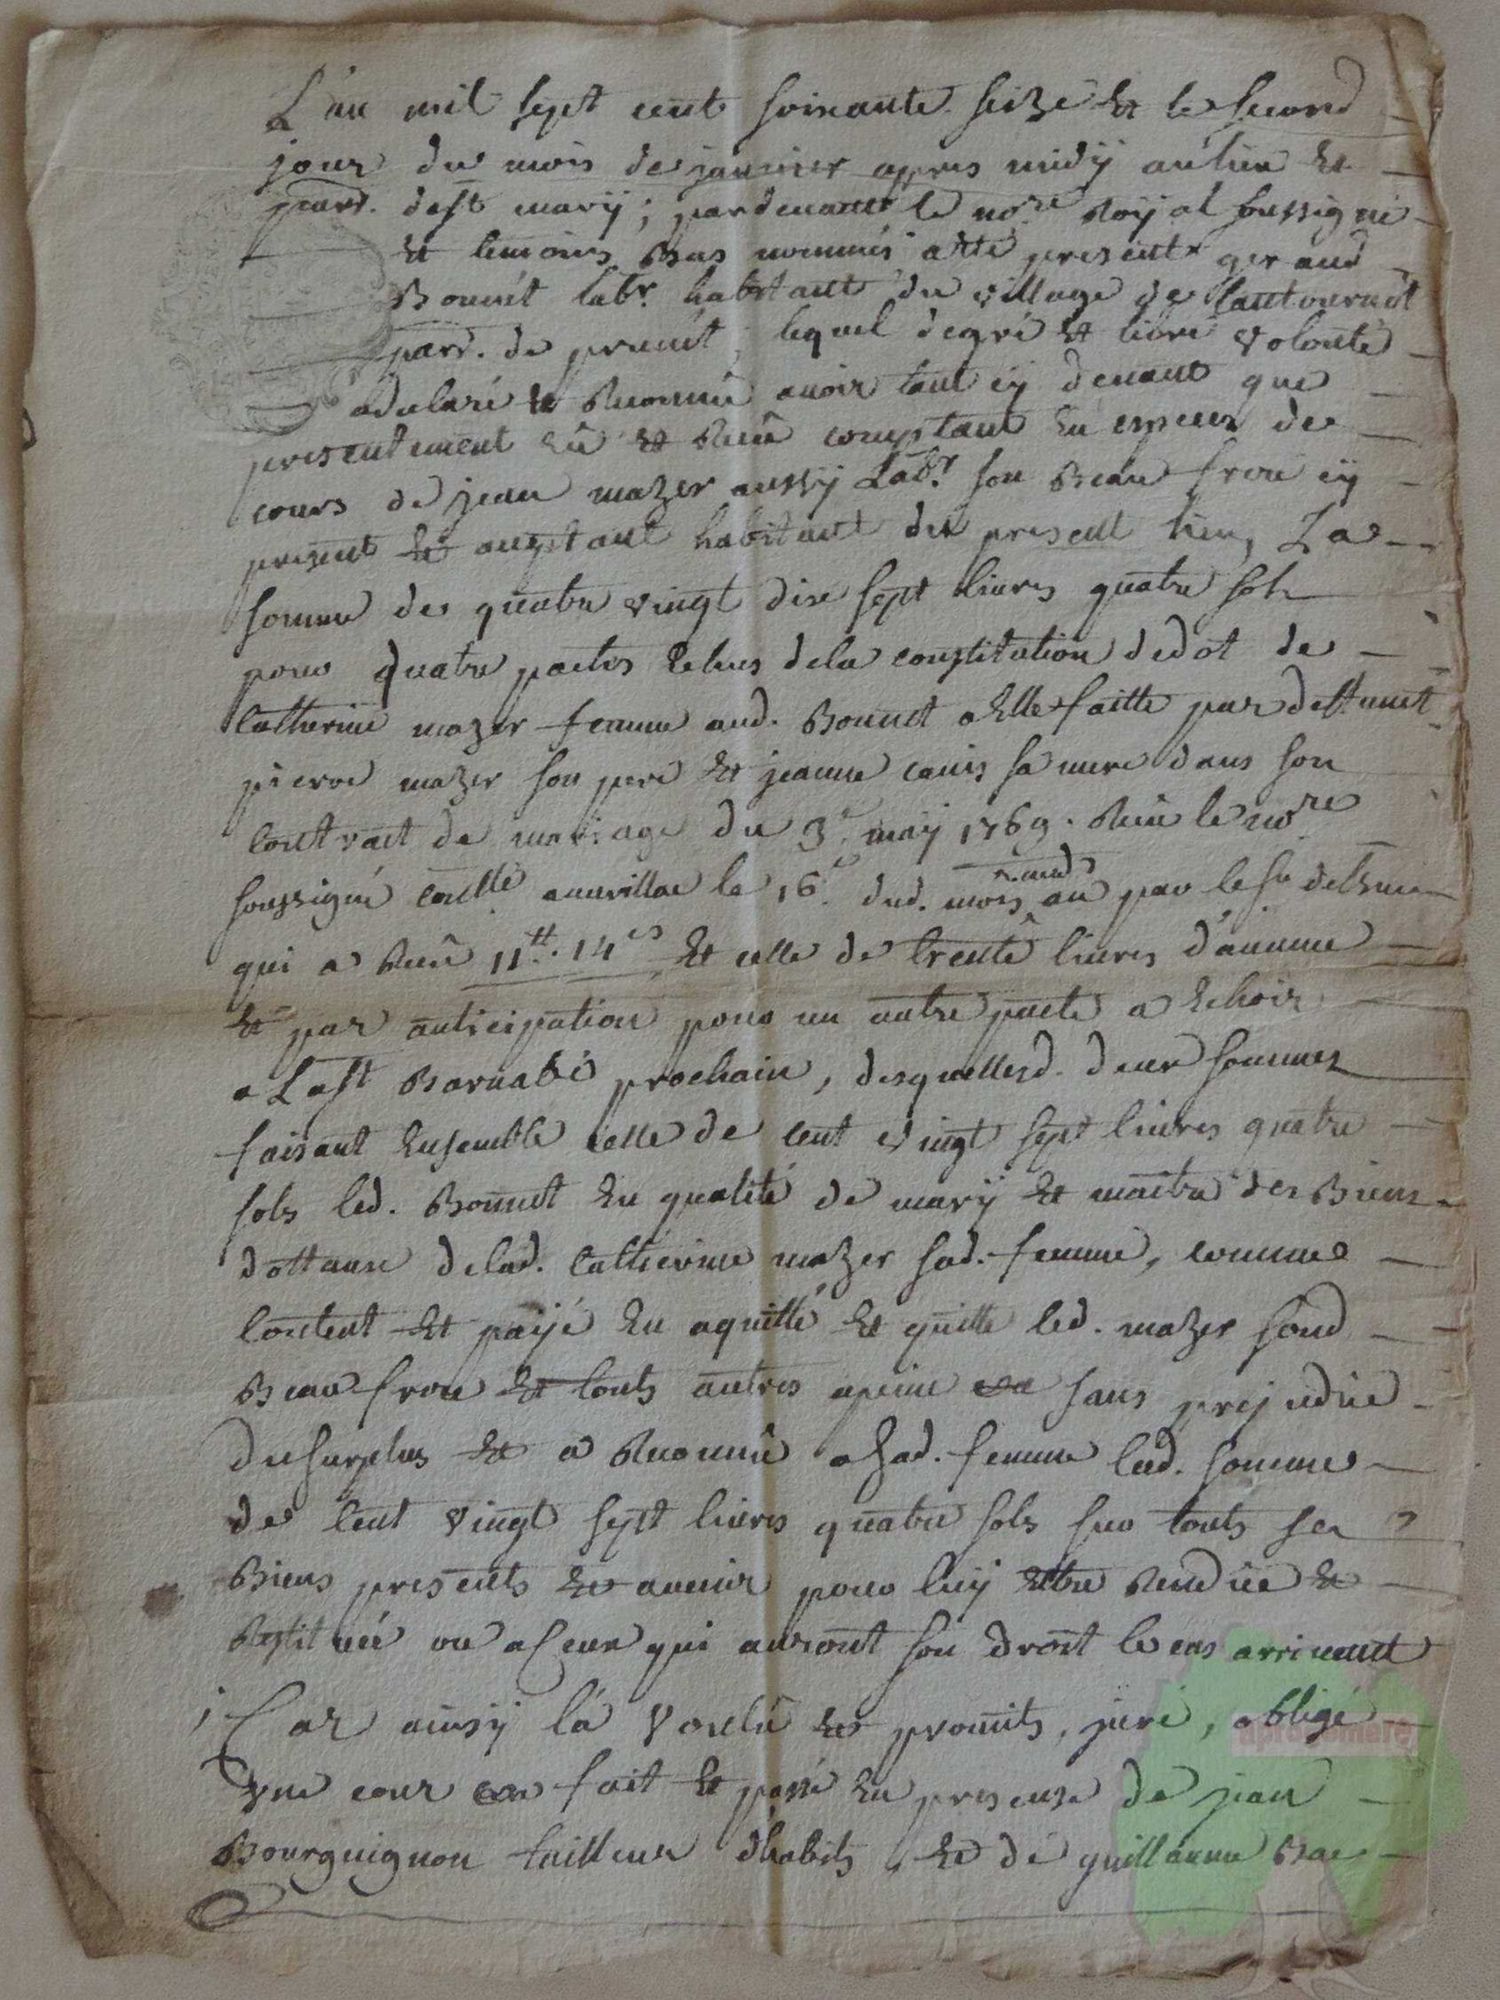 L'an mil sept cent soixante seize et le second
jour du mois de janvier appres midy au lieu et
parr. de st mary; pardevant le nore Royal soussigné
et temoins Bas nommés a été present geraud
Bonnet labr. habitant du village de
parr. de prunet, lequel de gré et libre volonté
a declaré et Reconnû avoir tant cy devant que
presentement eû et Reçû comptant en especes de
cours de jean mazer aussy Labr. son Beau frere cy
present et acceptant habitant du present lieu, La
somme de quatre vingt dix sept livres quatre sols
pour quatre pactes echus de la constitution de dot de
Catherine mazer femme aud. Bonnet a Elle faitte par deffunct
pierre mazer son pere et jeanne canis sa mere dans son
Contrait de mariage du 3e may 1769. Reçû le nore
soussigné conllé a aurillac le 16e dud. mois an par le sr
qui a Reçû 11tt. 14s et celle de trente livres d'avance
et par anticipation pour un autre pacte a Echoir
a La st Barnabé prochain, desquelles d. deux sommes
faisant Ensemble celle de cent vingt sept livres quatre
sols led. Bonnet En qualité de mary et maitre des Biens
dottaux de lad. Catherine mazer sad. femme, comme
Content et payé En a quitté et quitte led. mazer sond
Beau frere et touts autres a peine sans prejudice
du surplus et a Reconnû a sad. femme lad. somme
de Cent vingt sept livres quatre sols sur touts ses
Biens presents et avenir pour luy etre Rendüe et
Restituée ou a ceux qui auront son droit le cas arrivant
Car ainsy l'a Voulû et promits, juré, obligé
vue cour fait et passé En presence de jean
Bourguignon tailleur d'habits, et de guillaume Bac
apros